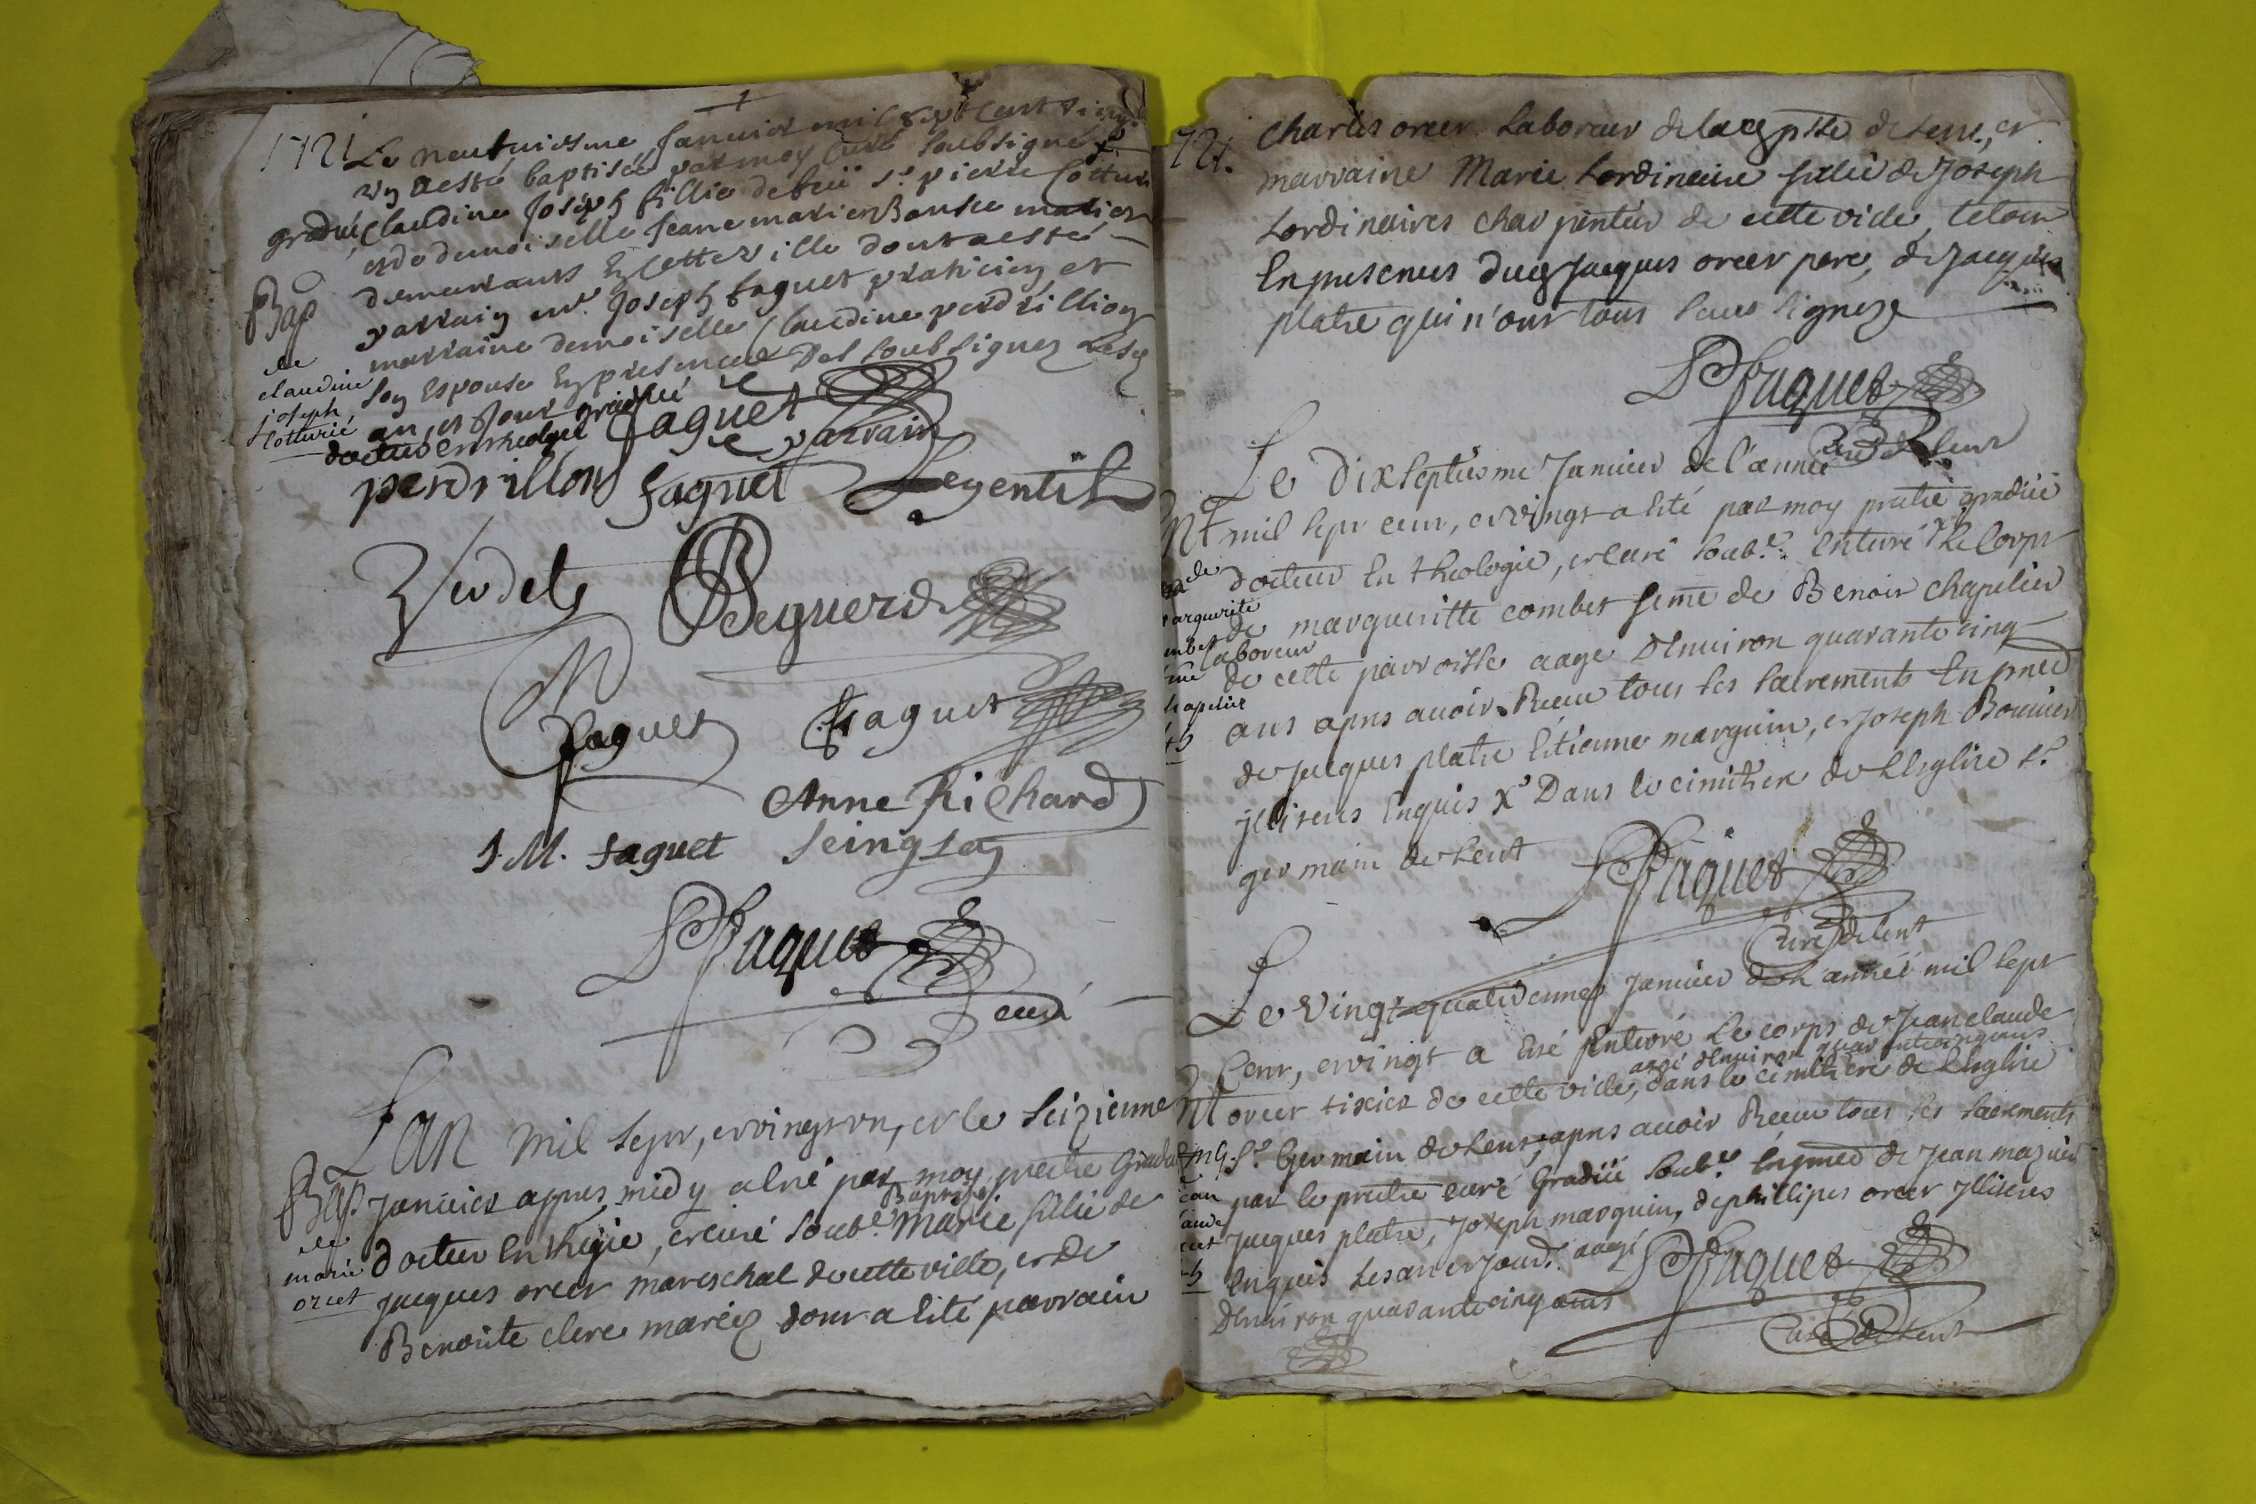 1721
Le neufviesme Janvier mil sept cent vingt
un a esté baptisée par moy curé soubsigné
gradué, Claudine Joseph fillie de feü sr. pierre Cotturié
et de demoiselle Jeanne marie Bonsee mariez
demeurants En cette ville dont a esté
parrain mr. Joseph faguet praticien et
marraine demoiselle Claudine perdrillion
son Espouse En presence des soubsignez Lesd
an et Jour gradué
docteur en theologie
Bap
de
claudine
joseph
cotturié
faguet parrain
perdrillon faguet Legentil
Verdet Beguerd
faguet faguet
Anne Richard
J. M. faguet
faguet
curé
Lan mil sept, et vingt un, et le seizienne
Janvier apres midy a esté par moy pretre Gradué
Baptizé
docteur En thgie, et curé soubs. Marie fillie de
jacques orcet mareschal de cette ville, et de
Benoite clerc mariez dont a été parrain
Bap
de
marie
orcet
1721.
Charles orcet Laboreur de la parsse de serve, et
marraine Marie Lordinaire fillie de Joseph
Lordinaires charpentier de cette ville, le tout
En presences dud Jacques orcet pere, de Jacques
platre qui n'ont tous sceu signez
faguet
Curé de Lent
Le Dixseptiesme Janvier de l'année
mil sept cent, et vingt a été par moy pretre gradué
docteur En theologie, et curé soubs. Enterré Le Corps
de margueritte combet feme de Benoit chapelier
laboreur
de cette parroisse aage D'Environ quarante cinq
ans apres avoir Receu tous les sacrements En pnce
de Jacques platre Etienne marguin, et Joseph Bouvier
jlliteres Enquis Xs Dans le cimitiere de L'Eglise st.
germain de Lent
faguet
Curé de Lent
de
marguerite
combet
chapelier
Le Vingt quatrienne Janvier de L'année mil sept
Cent, et vingt a été Enterré Le corps de Jean claude
aagé d'Environ quarantecinq ans
orcet tixier de cette ville, dans le cimitiere de L'Eglise
st. Germain de Lent, apres avoir Receu tous les sacrements
par le pretre curé Gradué soubs. En pnce de Jean maziere
Jacques platre, Joseph marguin, de phillipes orcet Jlliteres
Enquis Les an et jour. aagé
D'Environ quarantecinq ans
faguet
Curé de Lent